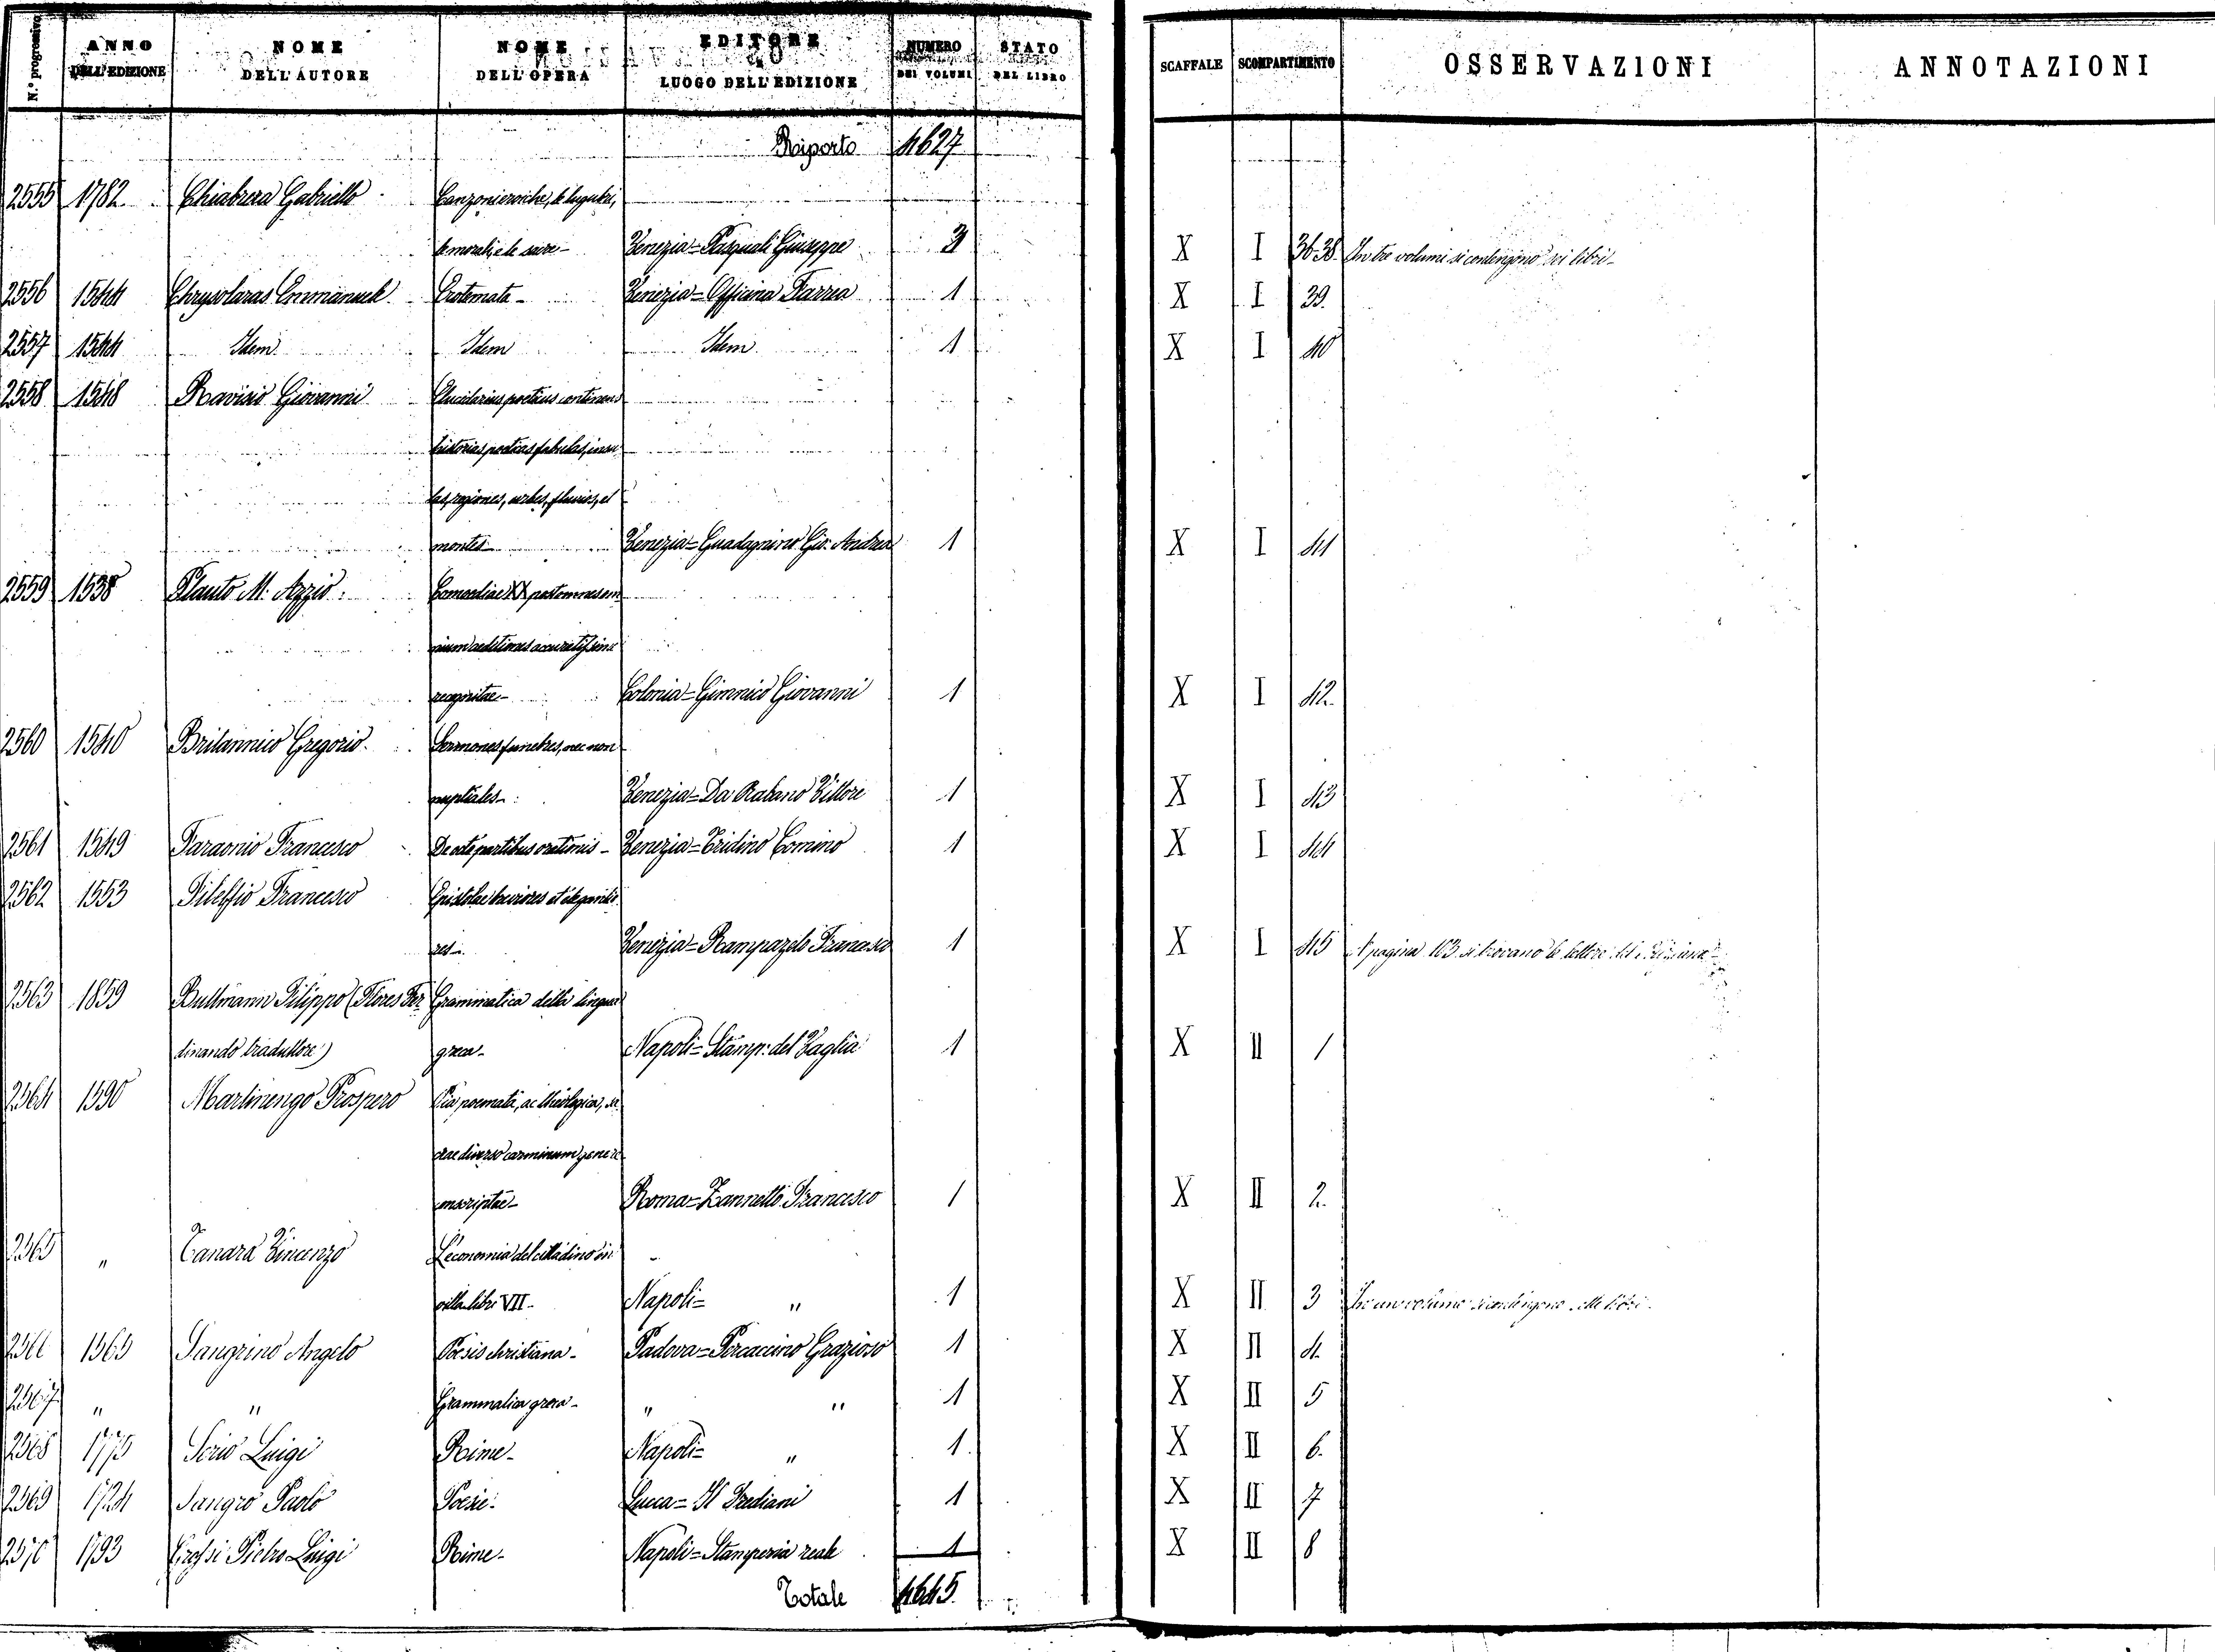 N.° progressivo | ANNO DELL'EDIZIONE | NOME DELL'AUTORE | NOME DELL'OPERA | EDITORE LUOGO DELL'EDIZIONE | NUMERO DEI VOLUMI | STATO DEL LIBRO | SCAFFALE | SCOMPARTIMENTO | OSSERVAZIONI | ANNOTAZIONI
Riporto 4627
2555 1782 Chiabrera Gabriello Canzoni eroiche, le lugubri,
le morali, e le sacre - Venezia = Pasquali Giuseppe 3 X I 36-38 In tre volumi si contengono sei libri -
2556 1544 Chrysolaras Emmanuele Erotemata - Venezia = Officina Farrea 1 X I 39.
2557 1544 Idem Idem Idem 1 X I 40
2558 1548 Ravisio Giovanni Elucidarius poeticus continens
historias poeticas, fabulas, insu
las, regiones, urbes, fluvios, et
montes - Venezia = Guadagnino Gio: Andrea 1 X I 41
2559 1538 Plauto M. Azzio Comoediae XX post omnes om
nium aeditiones accuratissime
recognitae - Colonia = Gimnico Giovanni 1 X I 42.
2560 1540 Britannico Gregorio Sermones funebres, nec non
nuptiales - Venezia = Da Rabano Vittore 1 X I 43
2561 1549 Faraonio Francesco De octo partibus orationis - Venezia = Tridino Comino 1 X I 44
2562 1553 Filelfio Francesco Epistolae breviores et elegantio
res - Venezia = Rampazeto Francesco 1 X I 45 A pagina 103 si trovano le lettere del
2563 1859 Buttmann Filippo (Flores Fer Grammatica della lingua
dinando traduttore) greca - Napoli = Stamp: del Vaglio 1 X II 1
2564 1590 Martinengo Prospero Pia poemata, ac theologica,
diverso carminum genere
conscriptae - Roma = Zannetto Francesco 1 X II 2.
2565 " Tanara Vincenzo L'economia del cittadino in
villa libri VII - Napoli = " 1 X II 3 In un volume si contengono sette libri -
2566 1565 Sangrino Angelo Poesis christiana - Padova = Percaccino Grazioso 1 X II 4.
2567 " " Grammatica greca - " " 1 X II 5
2568 1775 Serio Luigi Rime - Napoli = " 1. X II 6.
2569 1724 Sangro Paolo Poesie - Lucca = Il Frediani 1 X II 7
2570 1793 Grossi Pietro Luigi Rime - Napoli = Stamperia reale 1 X II 8
Totale 4645.